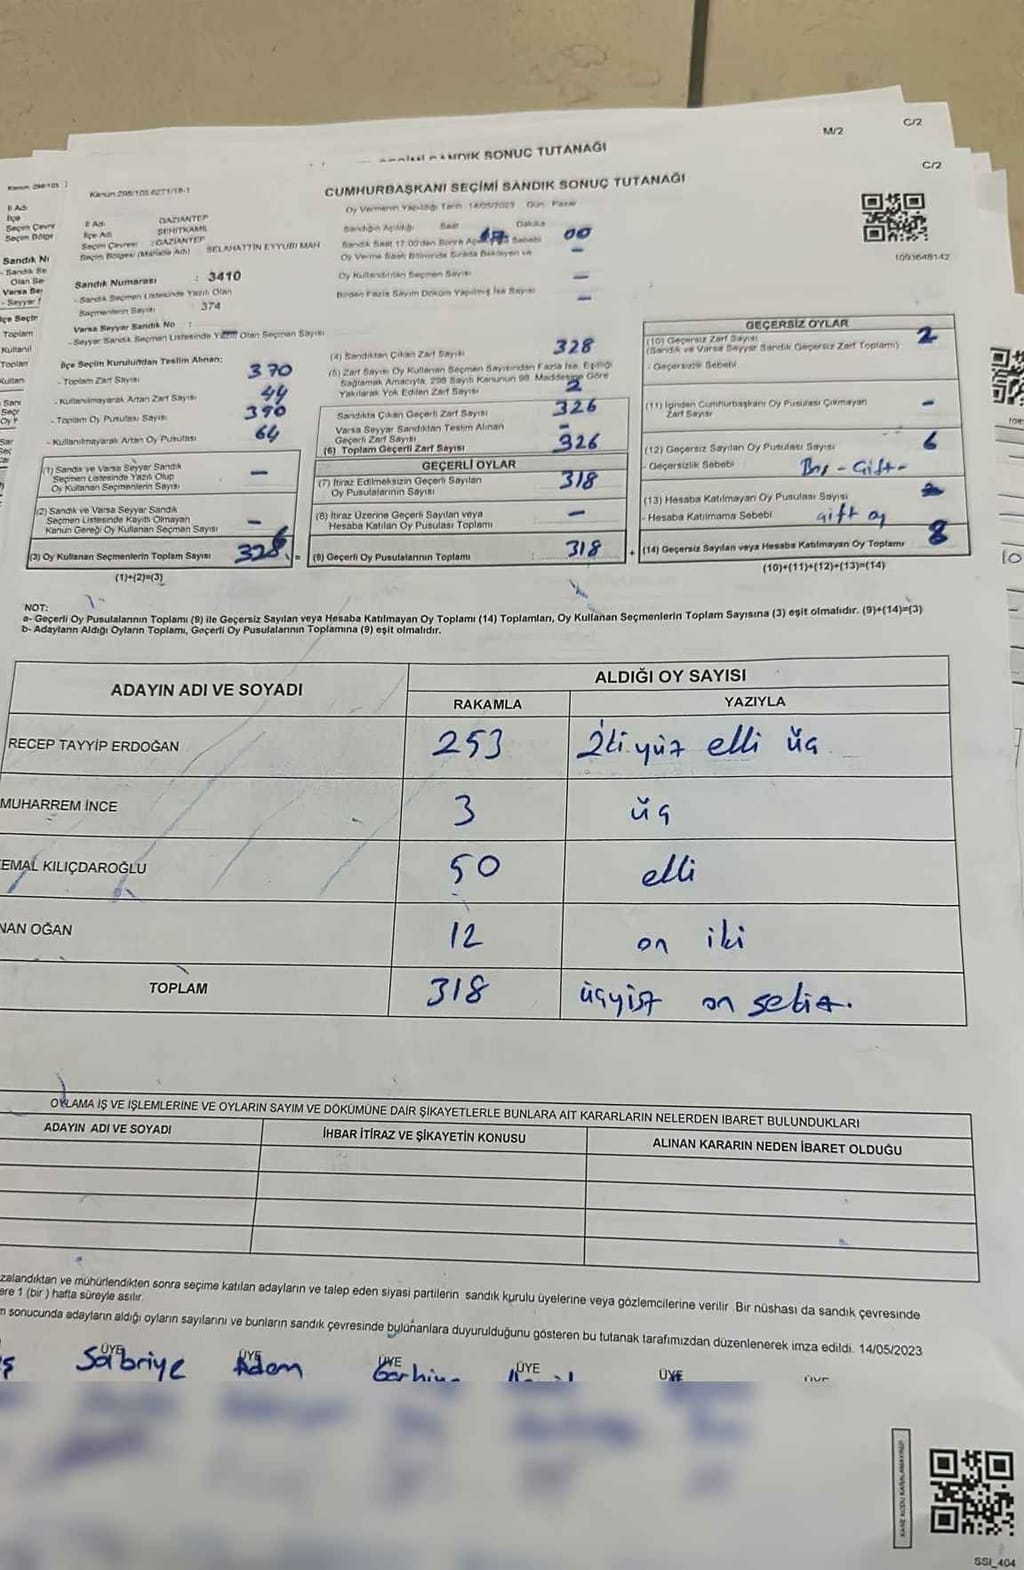 M/2
C/2
SANDIK SONUÇ TUTANAĞI
C/2
Kanun:298/105 6271/18-1
CUMHURBAŞKANI SEÇİMİ SANDIK SONUÇ TUTANAĞI
Oy Vermenin Yapıldığı Tarih :14/05/2023 Gün : Pazar
1093648142
İl Adı : GAZİANTEP
İlçe Adı : ŞEHİTKAMİL
Seçim Çevresi : GAZİANTEP
Seçim Bölgesi (Mahalle Adı) : SELAHATTİN EYYUBİ MAH
Sandık Numarası : 3410
- Sandık Seçmen Listesinde Yazılı Olan
Seçmenlerin Sayısı : 374
Varsa Seyyar Sandık No :
- Seyyar Sandık Seçmen Listesinde Yazılı Olan Seçmen Sayısı
İlçe Seçim Kurulu'ndan Teslim Alınan:
- Toplam Zarf Sayısı 370
- Kullanılmayarak Artan Zarf Sayısı 44
- Toplam Oy Pusulası Sayısı 390
- Kullanılmayarak Artan Oy Pusulası 64
(1) Sandık ve Varsa Seyyar Sandık
Seçmen Listesinde Yazılı Olup
Oy Kullanan Seçmenlerin Sayısı –
(2) Sandık ve Varsa Seyyar Sandık
Seçmen Listesinde Kayıtlı Olmayan
Kanun Gereği Oy Kullanan Seçmen Sayısı –
(3) Oy Kullanan Seçmenlerin Toplam Sayısı 326
(1)+(2)=(3)
Sandığın Açıldığı Saat 17 Dakika 00
Sandık Saat 17.00'den Sonra Açıldıysa Sebebi –
Oy Verme Saati Bitiminde Sırada Bekleyen ve
Oy Kullandırılan Seçmen Sayısı –
Birden Fazla Sayım Döküm Yapılmış İse Sayısı –
(4) Sandıktan Çıkan Zarf Sayısı 328
(5) Zarf Sayısı Oy Kullanan Seçmen Sayısından Fazla İse, Eşitliği
Sağlamak Amacıyla, 298 Sayılı Kanunun 98. Maddesine Göre
Yakılarak Yok Edilen Zarf Sayısı 2
Sandıkta Çıkan Geçerli Zarf Sayısı 326
Varsa Seyyar Sandıktan Teslim Alınan
Geçerli Zarf Sayısı –
(6) Toplam Geçerli Zarf Sayısı 326
GEÇERLİ OYLAR
(7) İtiraz Edilmeksizin Geçerli Sayılan
Oy Pusulalarının Sayısı 318
(8) İtiraz Üzerine Geçerli Sayılan veya
Hesaba Katılan Oy Pusulası Toplamı –
(9) Geçerli Oy Pusulalarının Toplamı 318
GEÇERSİZ OYLAR
(10) Geçersiz Zarf Sayısı 2
(Sandık ve Varsa Seyyar Sandık Geçersiz Zarf Toplamı)
- Geçersizlik Sebebi
(11) İçinden Cumhurbaşkanı Oy Pusulası Çıkmayan
Zarf Sayısı –
(12) Geçersiz Sayılan Oy Pusulası Sayısı 6
- Geçersizlik Sebebi
(13) Hesaba Katılmayan Oy Pusulası Sayısı
- Hesaba Katılmama Sebebi çift oy
(14) Geçersiz Sayılan veya Hesaba Katılmayan Oy Toplamı 8
(10)+(11)+(12)+(13)=(14)
NOT:
a- Geçerli Oy Pusulalarının Toplamı (9) ile Geçersiz Sayılan veya Hesaba Katılmayan Oy Toplamı (14) Toplamları, Oy Kullanan Seçmenlerin Toplam Sayısına (3) eşit olmalıdır. (9)+(14)=(3)
b- Adayların Aldığı Oyların Toplamı, Geçerli Oy Pusulalarının Toplamına (9) eşit olmalıdır.
ADAYIN ADI VE SOYADI
ALDIĞI OY SAYISI
RAKAMLA YAZIYLA
RECEP TAYYİP ERDOĞAN 253 İkiyüz elli üç
MUHARREM İNCE 3 üç
EMAL KILIÇDAROĞLU 50 elli
NAN OĞAN 12 on iki
TOPLAM 318 üçyüz on sekiz.
OYLAMA İŞ VE İŞLEMLERİNE VE OYLARIN SAYIM VE DÖKÜMÜNE DAİR ŞİKAYETLERLE BUNLARA AİT KARARLARIN NELERDEN İBARET BULUNDUKLARI
ADAYIN ADI VE SOYADI İHBAR İTİRAZ VE ŞİKAYETİN KONUSU ALINAN KARARIN NEDEN İBARET OLDUĞU
zalandıktan ve mühürlendikten sonra seçime katılan adayların ve talep eden siyasi partilerin sandık kurulu üyelerine veya gözlemcilerine verilir. Bir nüshası da sandık çevresinde
ere 1 (bir) hafta süreyle asılır.
n sonucunda adayların aldığı oyların sayılarını ve bunların sandık çevresinde bulunanlara duyurulduğunu gösteren bu tutanak tarafımızdan düzenlenerek imza edildi. 14/05/2023
ÜYE ÜYE ÜYE ÜYE ÜYE ÜYE
Sabriye Adem
KARE KODU KARALAMAYINIZ
SSI_404